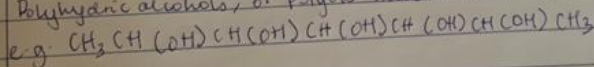 Polyhydric alcohols, or
e.g. CH3 CH (OH) CH (OH) CH (OH) CH (OH) CH (OH) CH3